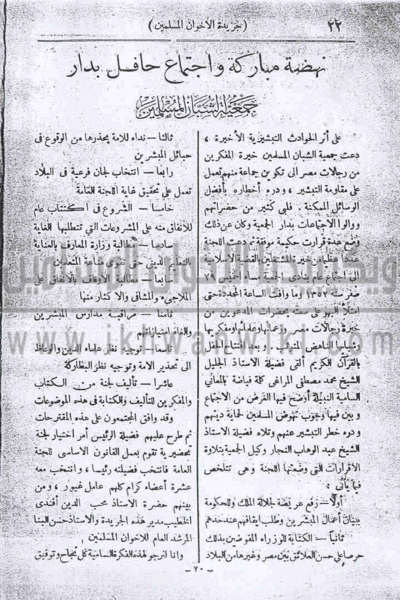 ٢٢
( جريدة الاخوان المسلمين )
نهضة مباركة واجتماع حافل بدار
جمعية الشبان المسلمين
على أثر الحوادث التبشيرية الأخيرة ،
دعت جمعية الشبان المسلمين خيرة المفكرين
من رجالات مصر الى تكوين جماعة منهم تعمل
على مقاومة التبشير ، ودرء أخطاره بأفضل
الوسائل الممكنة . فلبى كثير من حضراتهم
ووالوا الاجتماعات بدار الجمعية وكان عن ذلك
وضع عدة قرارات حكيمة موفقة ثم دعت اللجنة
صفر سنة ١٣٥٢ وما وافت الساعة المحددة حتى
امتلأ البهو على سعته بحضرات المدعوين من
خيرة رجالات مصر وزعمائها
وبعد افتتاح الحفل
بالقرآن الكريم ألقى فضيلة الاستاذ الجليل
الشيخ محمد مصطفى المراغى كلمة فياضة بالمعانى
السامية النبيلة أوضح فيها الغرض من الاجتماع
وبين فيها وجوب نهوض المسلمين لحماية دينهم
ودرء خطر التبشير عنهم وتلاه فضيلة الاستاذ
الشيخ عبد الوهاب النجار وكيل الجمعية بتلاوة
القرارات التى وضعتها اللجنة وهى تتلخص
فيما يأتى :
أولا — رفع عريضة لجلالة الملك وللحكومة
ببيان أعمال المبشرين وطلب ايقافهم عند حدهم
ثانيا — الكتابة للوزراء المفوضين بذلك
حرصا على حسن العلائق بين مصر وغيرها من البلاد
ثالثا — نداء للامة يحذرها من الوقوع فى
حبائل المبشرين
رابعا — انتخاب لجان فرعية فى البلاد
تعمل على تحقيق غاية اللجنة العامة
خامسا — الشروع فى اكتتاب عام
للانفاق منه على المشروعات التى تتطلبها الغاية
سادسا — مطالبة وزارة المعارف بالعناية
بالتعليم الدينى
سابعا — مطالبة الاوقاف بالانفاق على
الملاجئ والمشافى والاكثار منها
ثامنا — مراقبة مدارس المبشرين
والغاء امتيازاتها
تاسعا — توجيه نظر علماء الدين والوعاظ
الى تحذير الامة وتوجيه نظر البطاركة
عاشرا — تأليف لجنة من الكتاب
والمفكرين للتأليف والكتابة فى هذه الموضوعات
وقد وافق المجتمعون على هذه المقترحات
ثم طرح عليهم فضيلة الرئيس أمر اختيار لجنة
تحضيرية تقوم بعمل القانون الاساسى للجنة
العامة فانتخب فضيلته رئيسا ، وانتخب معه
عشرة أعضاء كرام كلهم عامل غيور ، ومن
بينهم حضرة الاستاذ محب الدين أفندى
الخطيب مدير هذه الجريدة والاستاذ حسن البنا
المرشد العام للاخوان المسلمين
وانا لنرجو لهذه الفكرة السامية كل نجاح وتوفيق
— ٢٠ —
www.ikhwanwiki.com